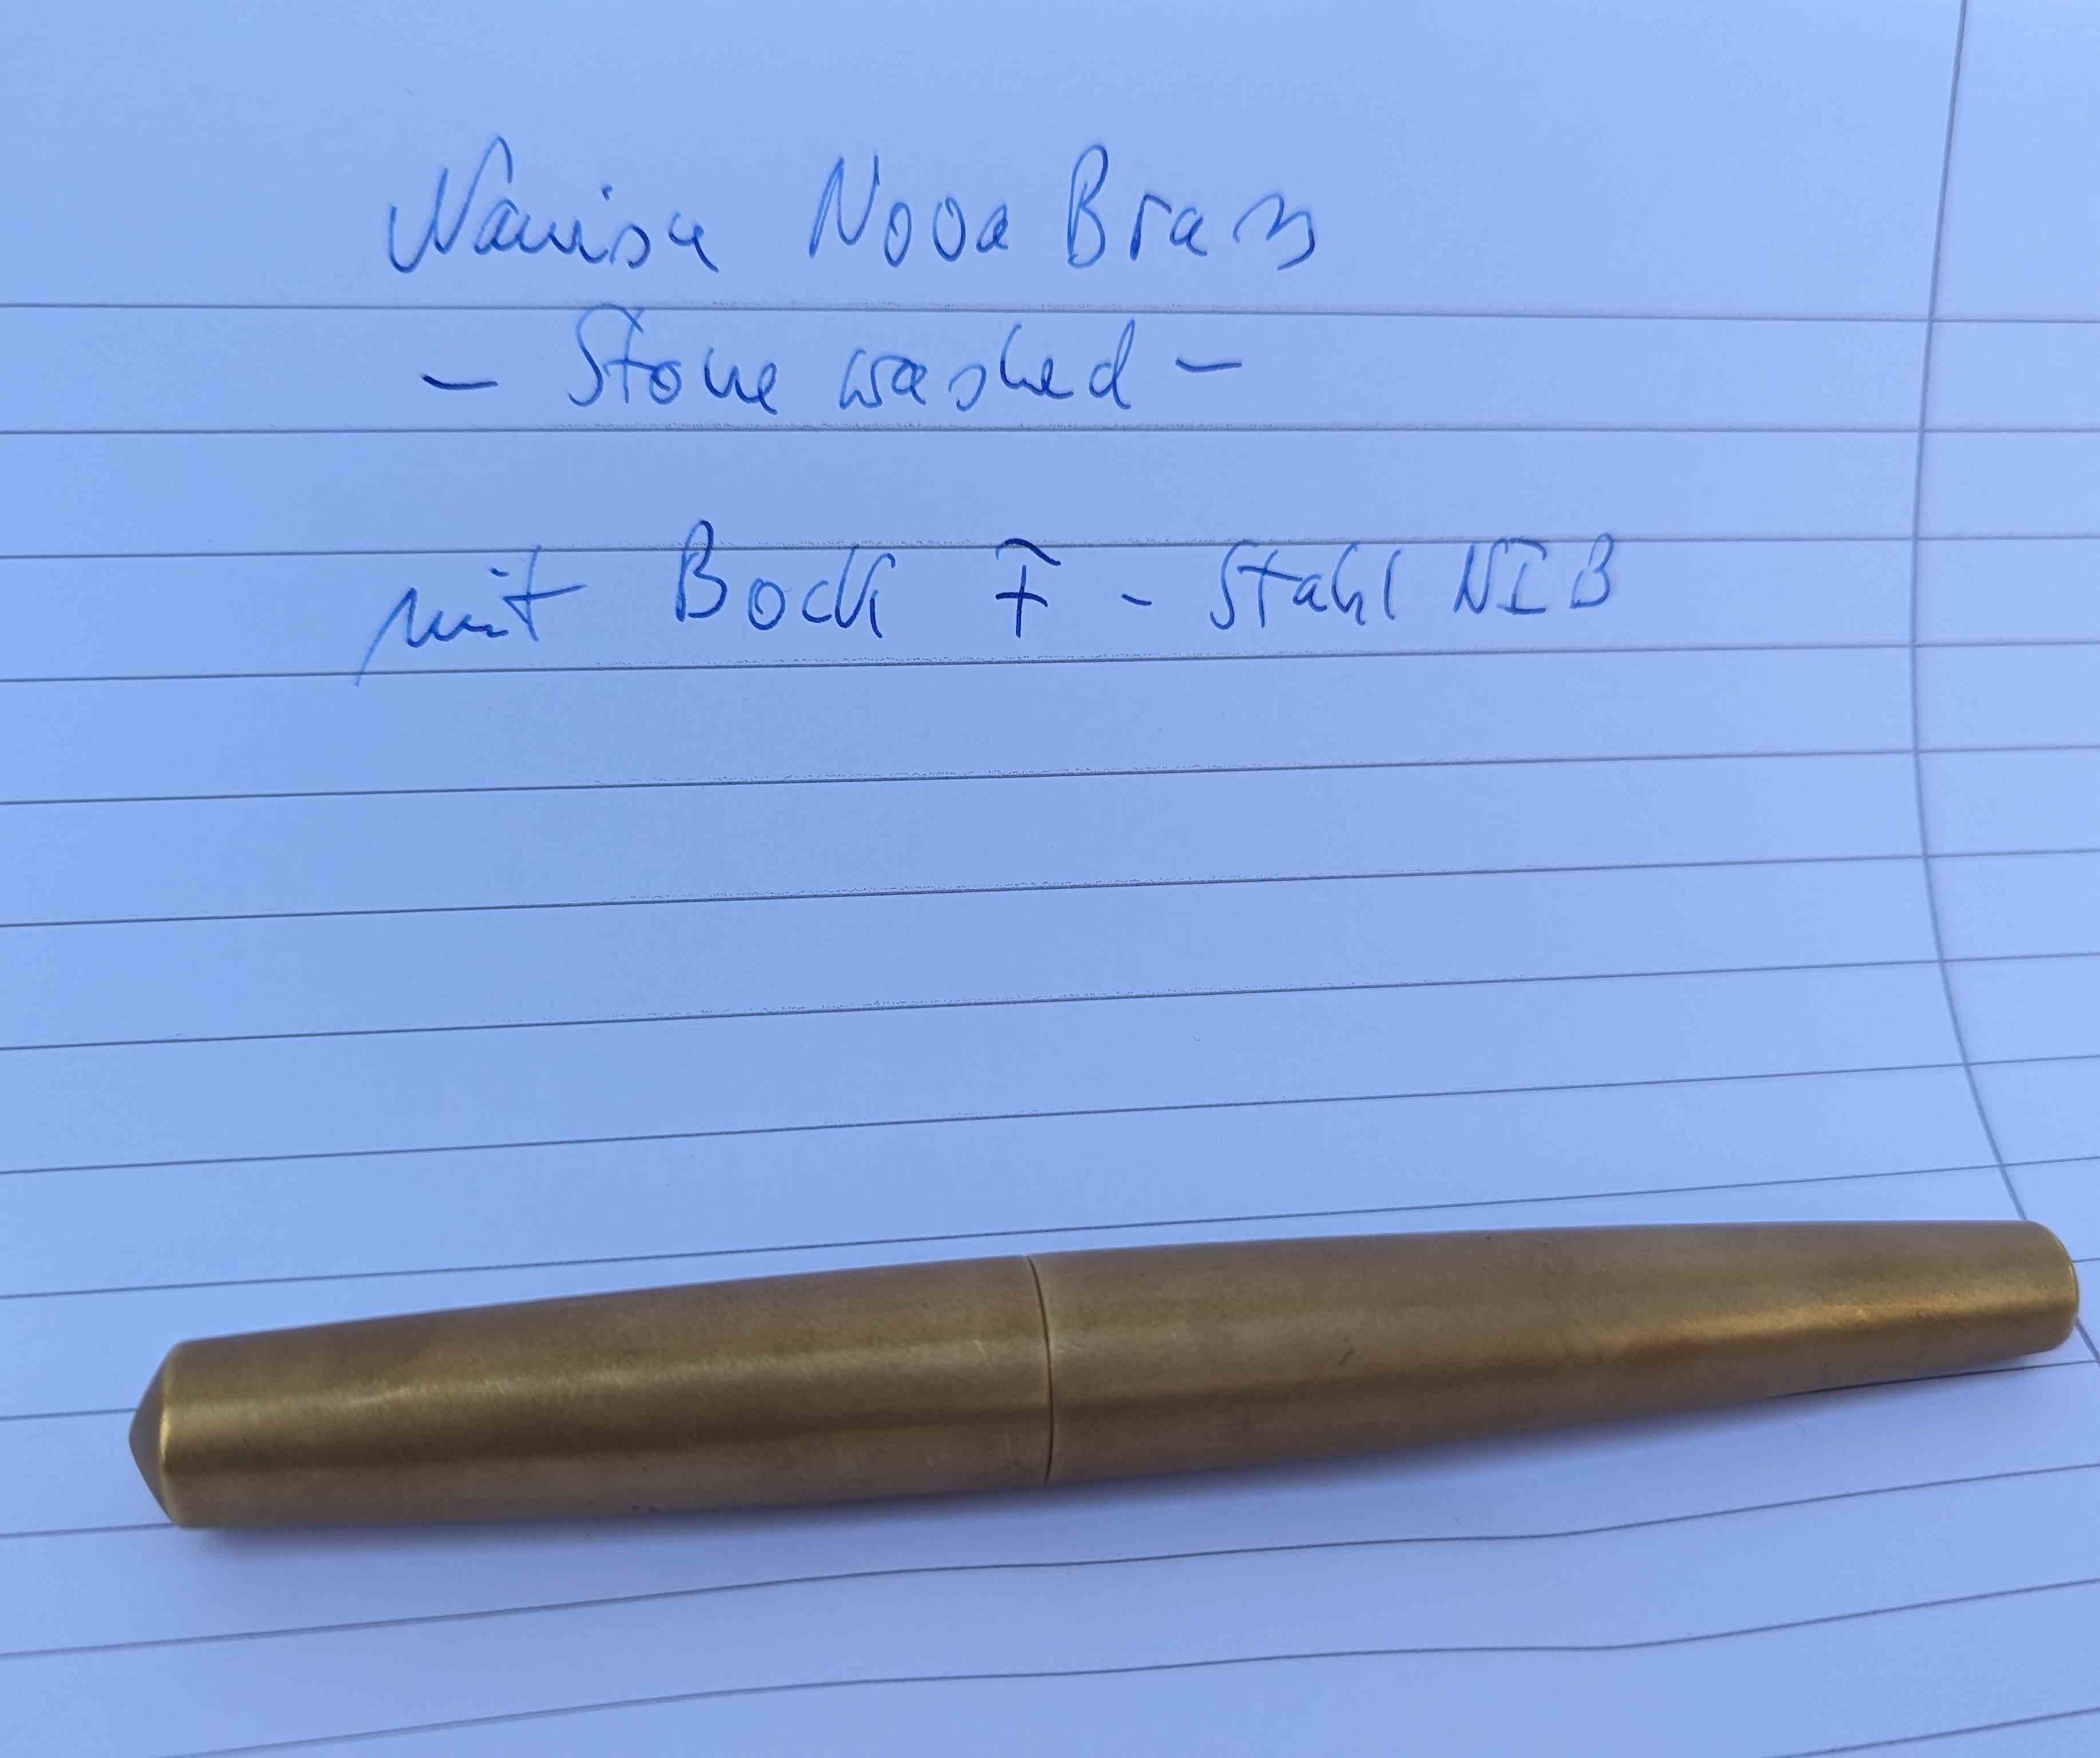 Namisu Nova Brass
- Stone washed -
mit Bock F - Stahl NIB